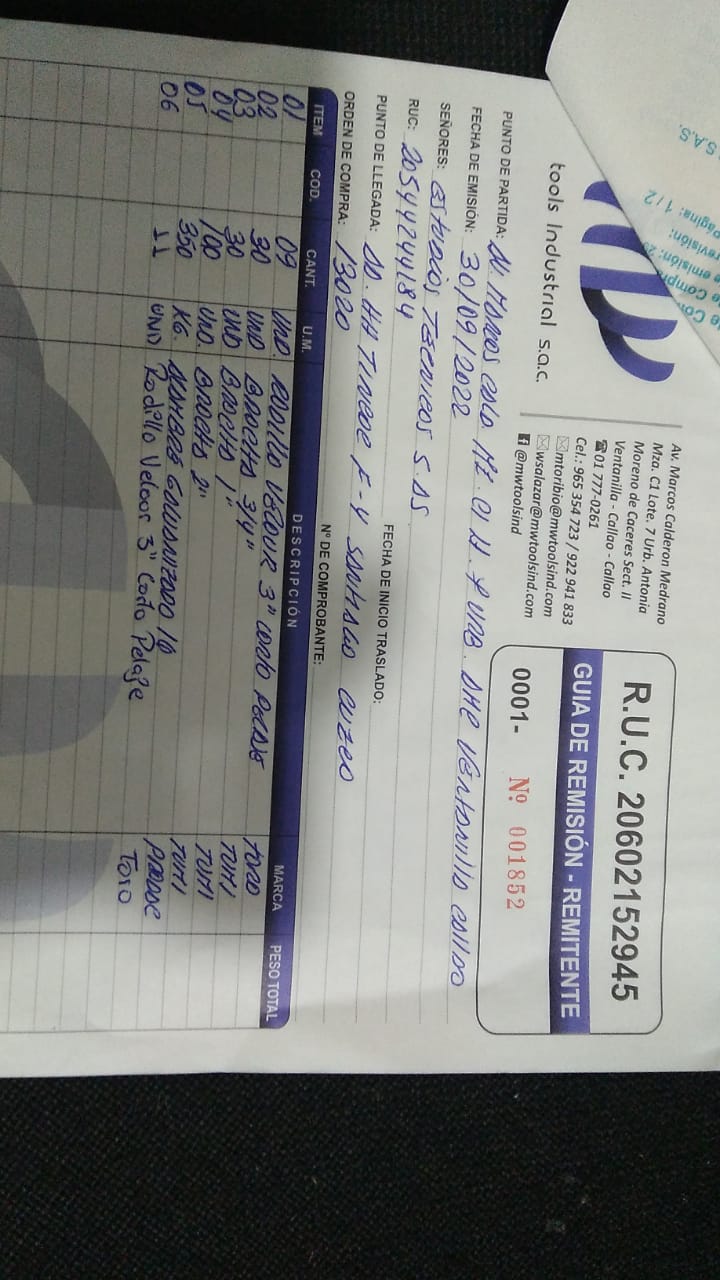 tools Industrial s.a.c.
Av. Marcos Calderon Medrano
Mza. C1 Lote. 7 Urb. Antonia
Moreno de Caceres Sect. II
Ventanilla - Callao - Callao
01 777-0261
Cel.: 965 354 723 / 922 941 833
mtoribio@mwtoolsind.com
wsalazar@mwtoolsind.com
@mwtoolsind
R.U.C. 20602152945
GUIA DE REMISIÓN - REMITENTE
0001- Nº 001852
PUNTO DE PARTIDA: AV. Marcos Cald Mz. C1 Urb. AMC Ventanilla Callao
FECHA DE EMISIÓN: 30/09/2022
SEÑORES: Estudios Tecnicos SAS
RUC: 20544244184 FECHA DE INICIO TRASLADO:
PUNTO DE LLEGADA: HH Tincoc F-4 Santiago Cuzco
ORDEN DE COMPRA: 13020 Nº DE COMPROBANTE:
ITEM COD. CANT. U.M. DESCRIPCIÓN MARCA PESO TOTAL
01 09 UND. RODILLO VELOUR 3" CORTO PELAJE TORO
02 30 UND BROCHA 3/4" TUMI
03 30 UND BROCHA 1" TUMI
04 100 UND. BROCHA 2" TUMI
05 350 KG. ALAMBRE GALVANIZADO 16 PRODAC
06 11 UND Rodillo Velour 3" Corto Pelaje Toro
S.A.S.
Página: 1 / 2